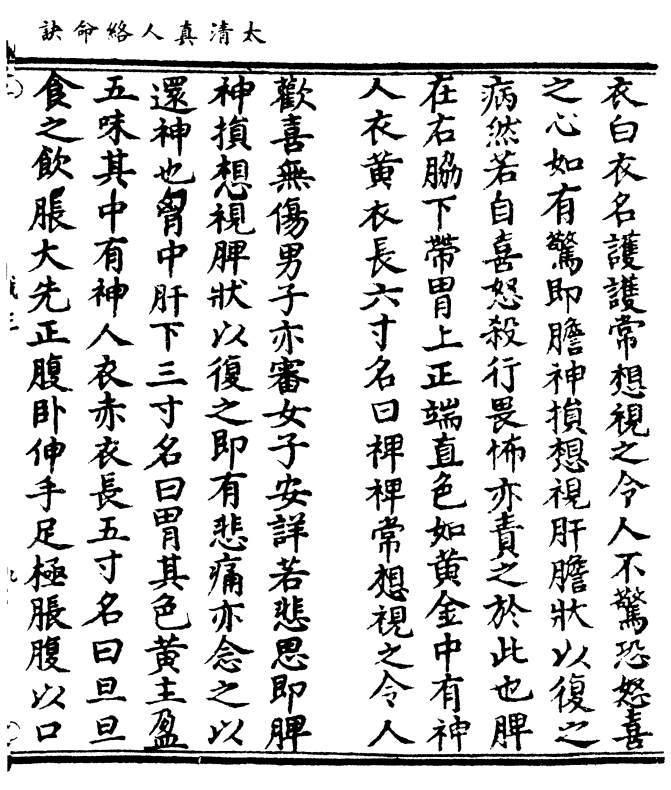 太清真人絡命訣
衣白衣名護護常想視之令人不驚恐怒喜
之心如有驚即膽神損想視肝膽狀以復之
病然若自喜怒殺行畏怖亦責之於此也脾
在右脇下帶胃上正端直色如黃金中有神
人衣黃衣長六寸名曰裨裨常想視之令人
歡喜無傷男子亦審女子安詳若悲思即脾
神損想視脾狀以復之即有悲痛亦念之以
還神也胷中肝下三寸名曰胃其色黃主盈
五味其中有神人衣赤衣長五寸名曰旦旦
食之飲脹大先正腹卧伸手足極脹腹以口